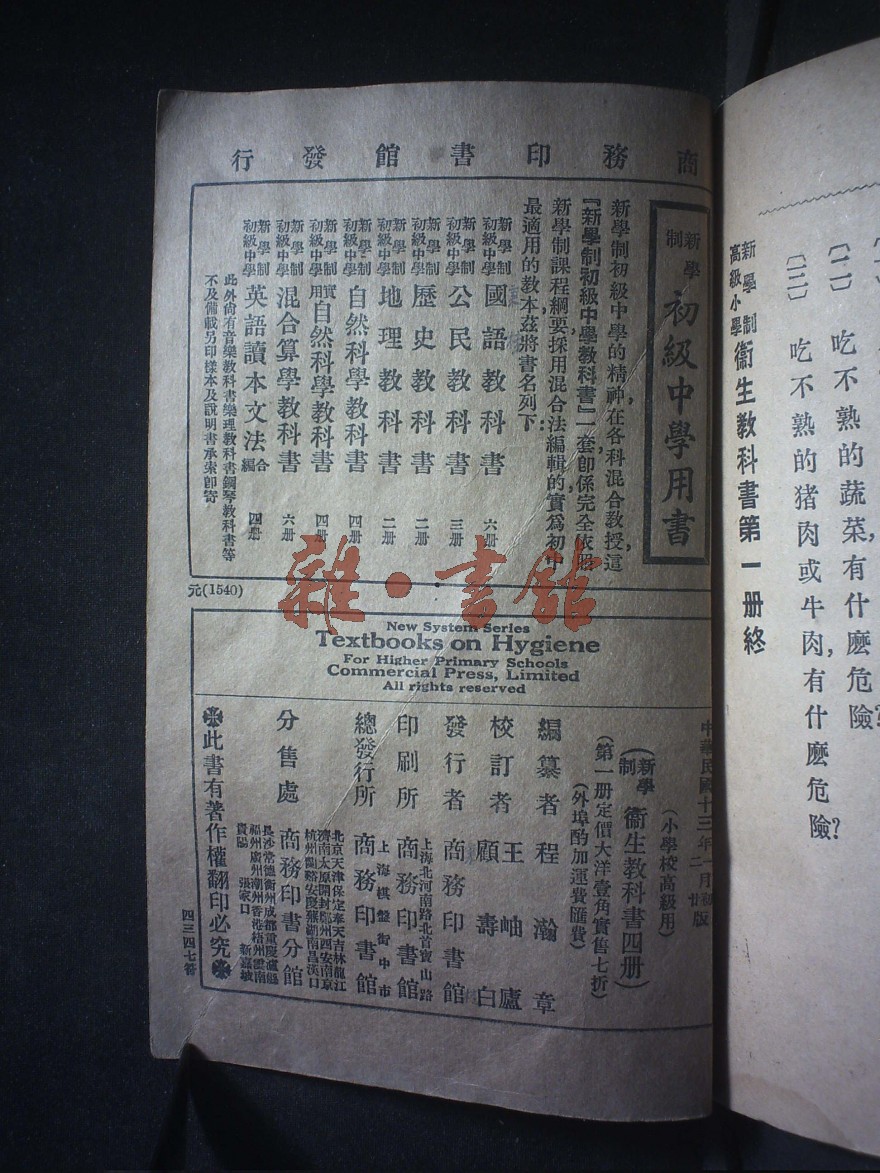 〔二〕 吃不熟的蔬菜,有什麽危險?
〔三〕 吃不熟的猪肉或牛肉,有什麽危險?
新學制高級小學衞生教科書第一册終
商務印書館發行
新學制初級中學用書
新學制初級中學的精神,在各科混合教授,這
『新學制初級中學教科書』一套,卽係完全依照
新學制課程綱要,採用混合法編輯的,實爲初中
最適用的教本,茲將書名列下:
新學制初級中學 國語教科書 六册
新學制初級中學 公民教科書 三册
新學制初級中學 歷史教科書 二册
新學制初級中學 地理教科書 二册
新學制初級中學 自然科學教科書 四册
新學制初級中學 實用自然科學教科書 四册
新學制初級中學 混合算學教科書 六册
新學制初級中學 英語讀本文法合編 四册
此外尙有音樂教科書樂理教科書鋼琴教科書等
不及備載另印樣本及說明書承索卽寄
元(1540)
雜·書館
New System Series
Textbooks on Hygiene
For Higher Primary Schools
Commercial Press, Limited
All rights reserved
中華民國十三年一月初版
(小學校高級用)
(新學制衞生教科書四册)
(第一册定價大洋壹角實售七折)
(外埠酌加運費匯費)
編纂者 程瀚章
校訂者 王岫廬 顧壽白
發行者 商務印書館
印刷所 上海北河南路北首寶山路 商務印書館
總發行所 上海棋盤街中市 商務印書館
分售處 商務印書分館
北京天津保定奉天吉林龍江
濟南太原開封鄭州西安南京
杭州蘭谿安慶蕪湖南昌漢口
長沙常德衡州成都重慶瀘縣
福州廣州潮州香港梧州雲南
貴陽 張家口 新嘉坡
此書有著作權翻印必究
四三四七番